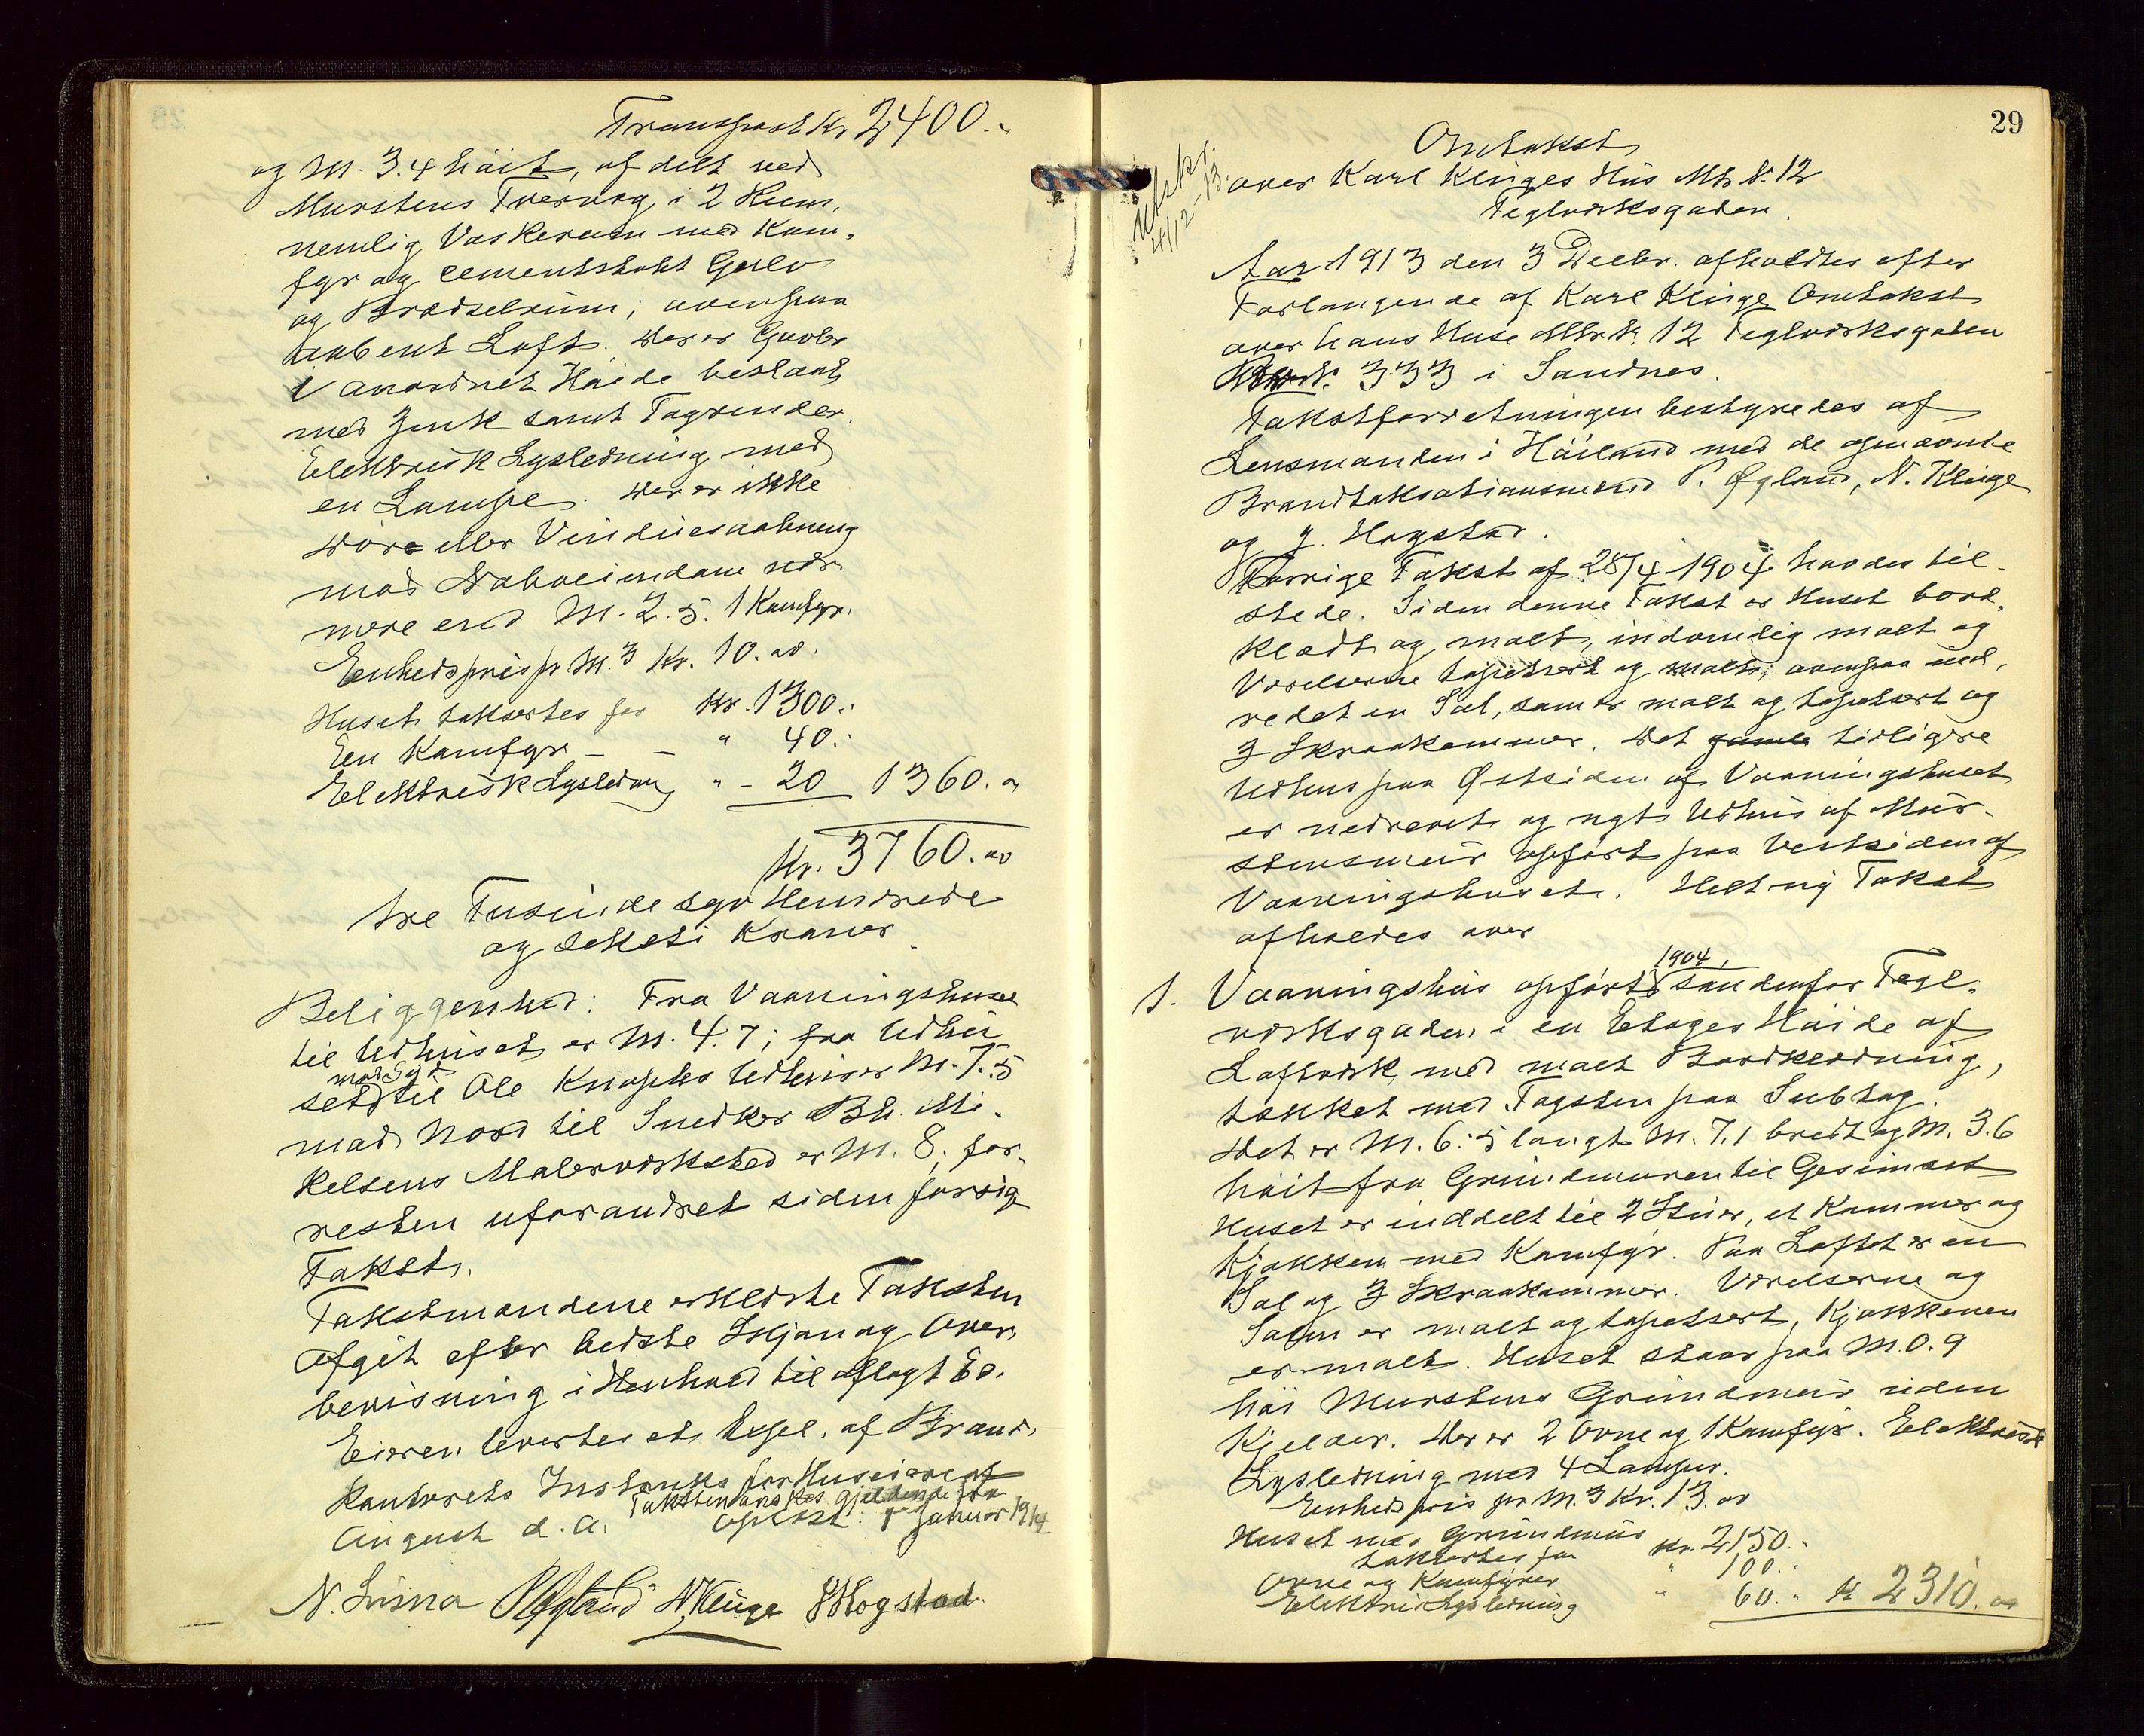 Transport Kr 2400.-
og M. 3.4 høit, afdelt ved
Murstens Tvervæg i 2 Rum,
nemlig Vaskerum med Kom-
fyr og cementstøbt Gulv
og Brædselrum; ovenpaa
aabent Loft. Der er Gavler
i anordnet Høide beslaat
med Zink samt Tagrender.
Elektrisk Lysledning med
en Lampe. Der er ikke
Døre eller Vinduesaabning
mod Naboeiendom
nære end M. 2.5. 1 Komfyr.
Enhedspris pr M.3 Kr. 10.00.
Huset takseres for Kr. 1300.-
En Komfyr - - " 40.-
Elektrisk Lysledning " - 20 1360.00
Kr. 3760.00
tre Tusinde syv Hundrede
og seksti Kroner.
Beliggenhed: Fra Vaaningshuset
til Udhuset er M. 4.7; fra Udhu-
set mod Syd til Ole Knaphus Udhus er M. 7.5
mod Nord til Snedker Bh. Mi-
kelsens Malerverksted er M. 8; for-
resten uforandret siden forrige
Takst.
Takstmændene erklærte Taksten
afgit efter bedste Skjøn og Over-
bevisning i Henhold til aflagt Ed.
Eieren levertes et Expl. af Brand-
kontorets Instruks for Huseiere af
August d. A. Taksten ønskes gjeldende fra
Oplæst. 1 Januar 1914
N. Lusna P. Øgland N. Klinge J. Hogstad.
29
Utskr.
4/12-13.
Omtakst
over Karl Klinges Hus Mtr. N. 12
Teglverksgaden.
Aar 1913 den 3 Decbr. afholdtes efter
Forlangende af Karl Klinge Omtakst
over hans Huse Mtr. N. 12 Teglverksgaden
333 i Sandnes.
Takstforretningen bestyredes af
Lensmanden i Høiland med de opnævnte
Brandtaksationsmænd P. Øgland, N. Klinge
og J. Hogstad.
Forrige Takst af 28/4 1904 havdes til-
stede. Siden denne Takst er Huset bord-
klædt og malt, indvendig malt og
Værelserne tapetsert og malt; ovenpaa ind-
redet en Sal, som er malt og tapetsert og
3 Skraakammer. Det gamle tidligere
Udhus paa Østsiden af Vaaningshuset
er nedrevet og nyt Udhus af Mur-
stensmur opført paa Vestsiden af
Vaaningshuset. Helt ny Takst
afholdes over
1. Vaaningshus opført 1904, søndenfor Tegl-
verksgaden i en Etages Høide af
Laftverk med malt Bordklædning,
tækket med Tagsten paa Subtag.
Det er M. 6.5 langt M. 7.1 bredt og M. 3.6
høit fra Grundmuren til Gesimset
Huset er inddelt til 2 Stuer, et Kammer og
Kjøkken med Komfyr. Paa Loftet er en
Sal og 3 Skraakammer. Værelserne og
Salen er malt og tapetsert, Kjøkkenen
er malt. Huset staar paa M. 0.9
høi Murstens Grundmur uden
Kjelder. Der er 2 Ovne og 1 Komfyr. Elektrisk
Lysledning med 4 Lamper.
Enhedspris pr M.3 Kr. 13.00
Huset med Grundmur
takseres for Kr. 2150.-
Ovne og Komfyrer " 100.-
Elektri Lysledning " 60.- Kr 2310.00